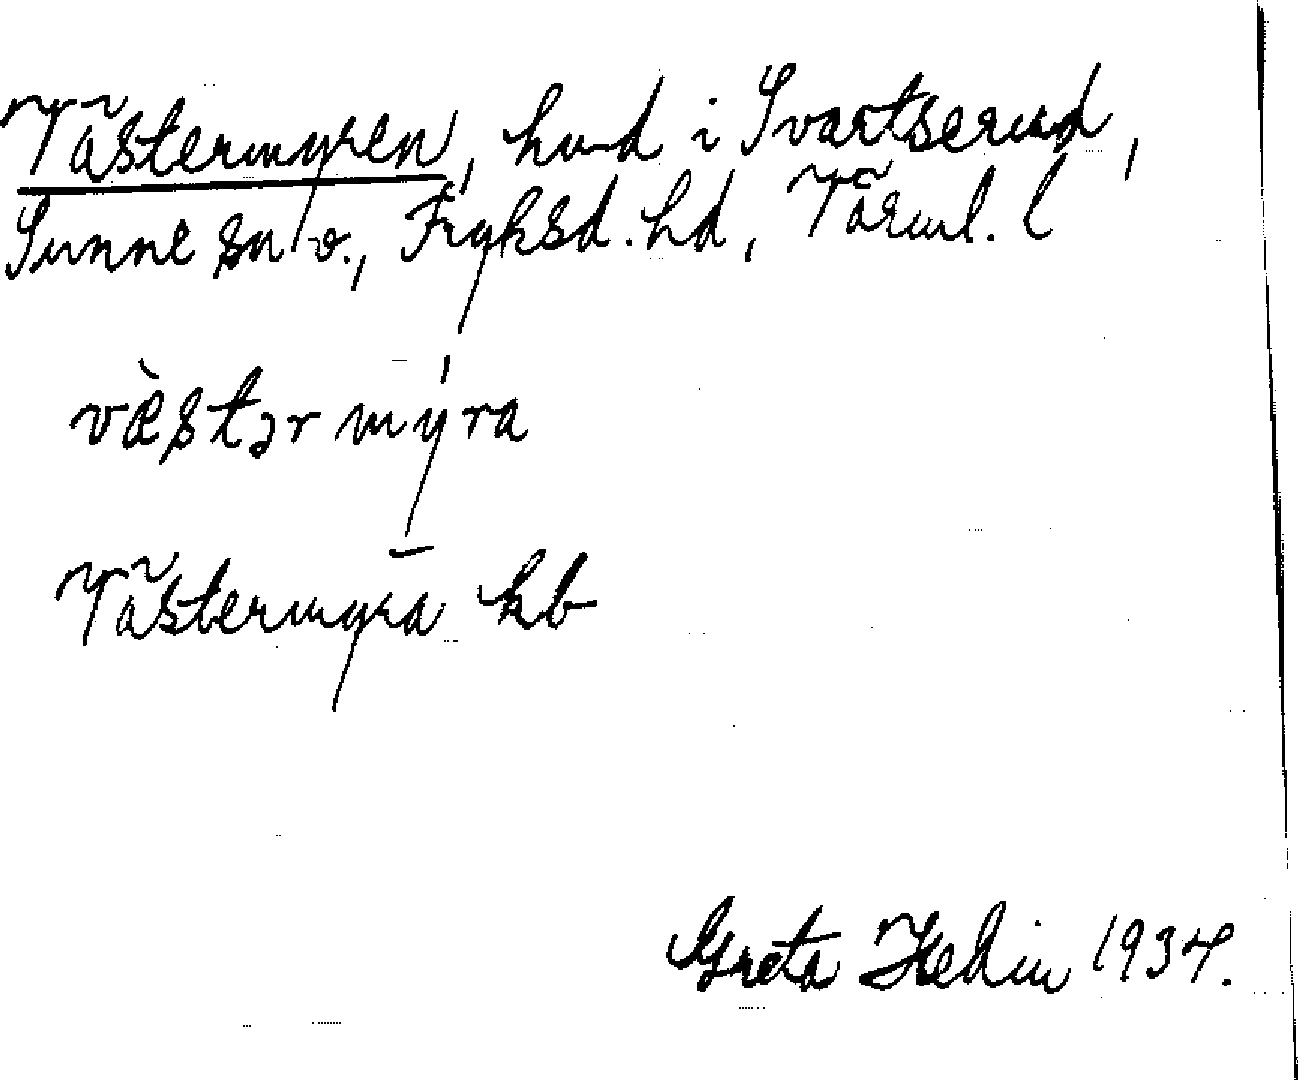 Västermyren, hmd i Svartserud,
Sunne sn ö., Fryksd. hd, Värml. l
v̀æstər mýra
Västermyra kb
Greta Hedin 1934.